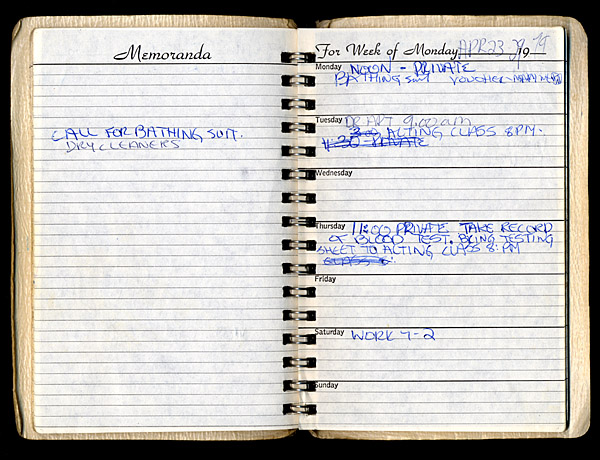 Memoranda
CALL FOR BATHING SUIT.
DRY CLEANERS
For Week of Monday, APR 23 29 1979
Monday NOON - PRIVATE
BATHING SUIT VOUCHER
Tuesday DR APT 9:00 am
3:00 ACTING CLASS 8PM.
1:30 - PRIVATE
Wednesday
Thursday 11:00 PRIVATE TAKE RECORD
OF BLOOD TEST. BRING TESTING
SHEET TO ACTING CLASS 8:PM
CLASS 8:
Friday
Saturday WORK 7-2
Sunday